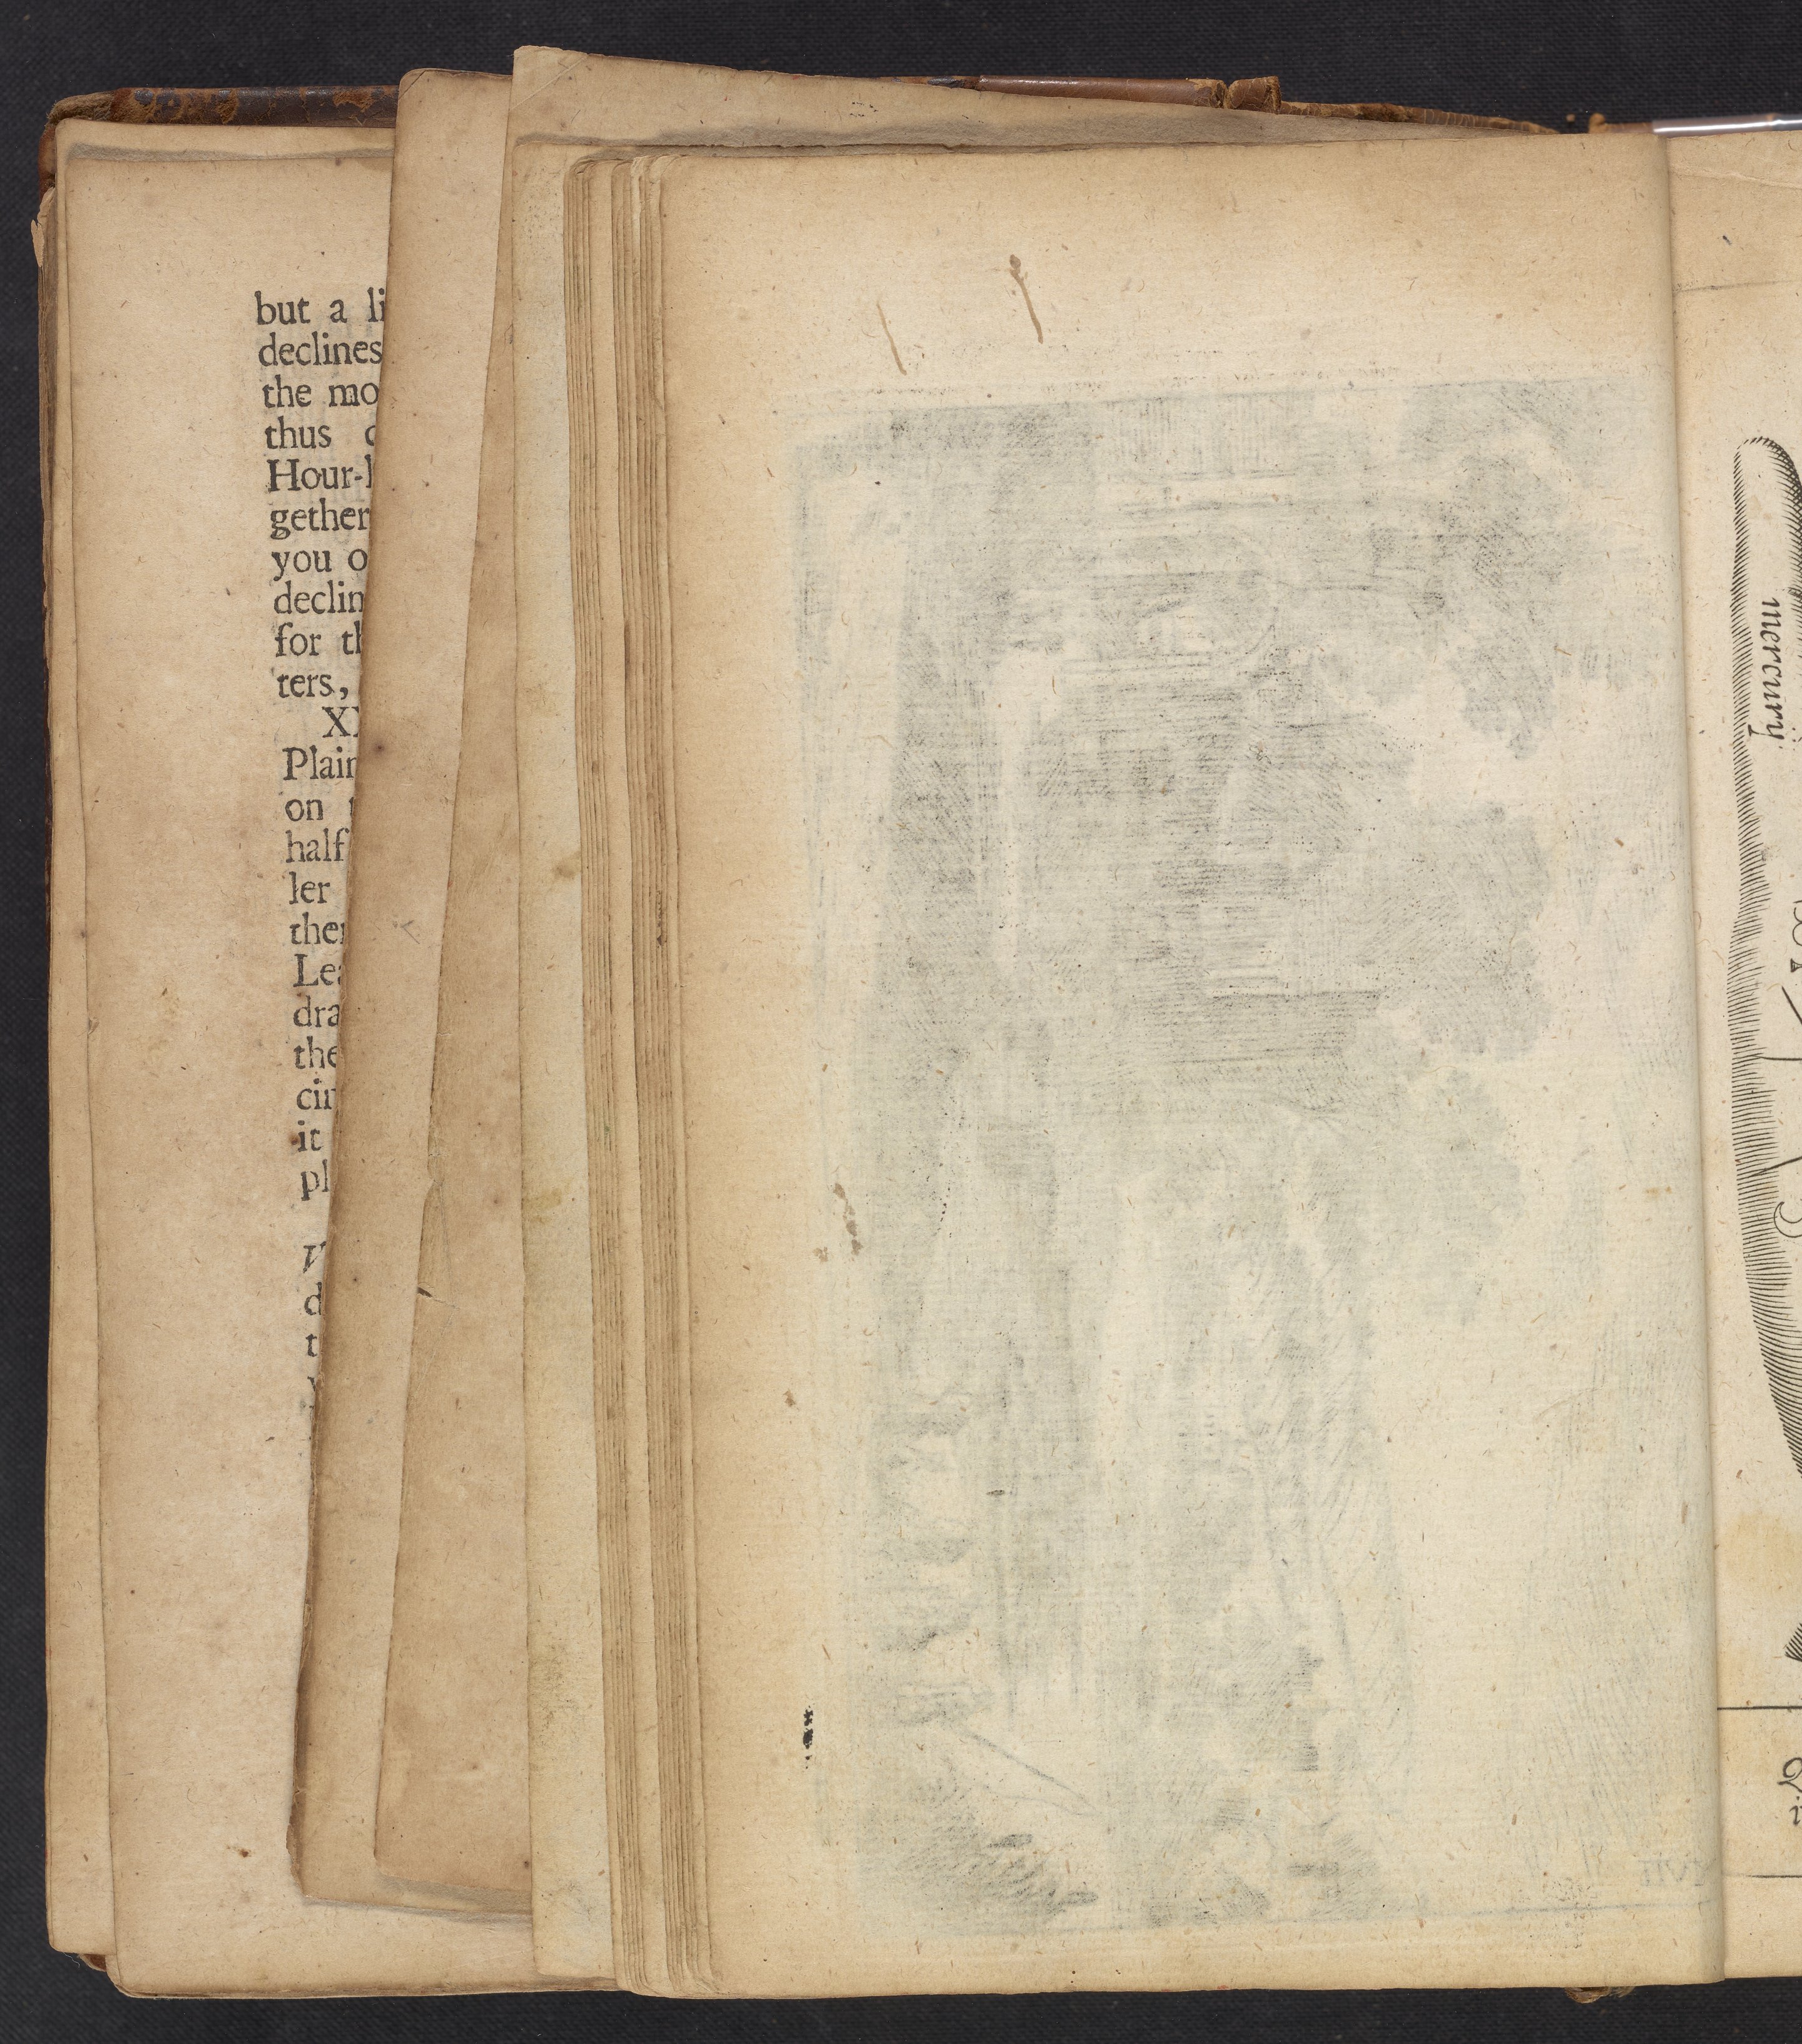 but a li
declines
the mo
thus
Hour-
gether
you o
declin
for th
ters,
XX
Plain
on t
half
ler
ther
Lea
dra
the
cir
it
pl
V
d
t
mercurij